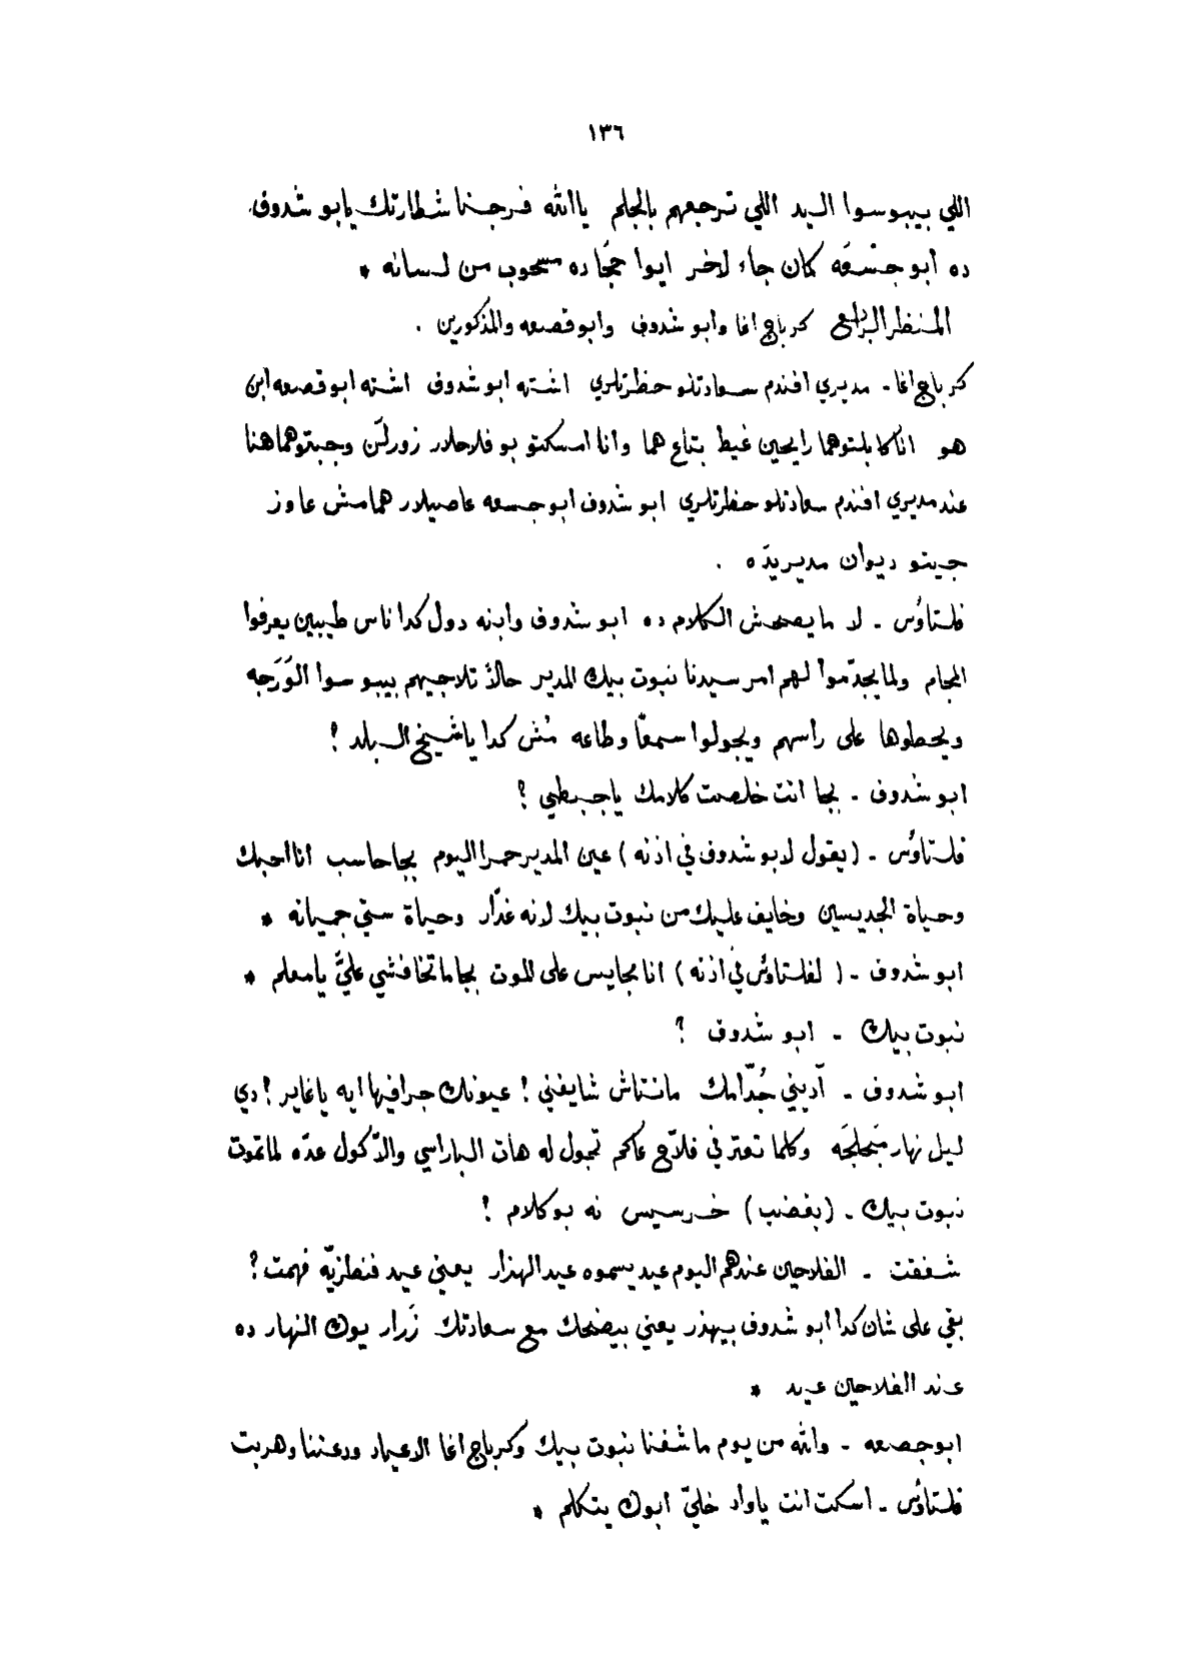 ١٣٦
اللي بيبوسوا اليد اللي ترجعهم بالجلم ياالله فرجنا شطارتك يابو شدوف
ده أبو جشعَه كان جاء لاخر ايوا حجًّا ده مسحوب من لسانه *
المنظر الرابع كرباج اغا وابو شدوف وابو قصعه والمذكورين .
كرباج اغا - مديري افندم سعادتلو حظرتلري اشته ابو شدوف اشته ابو قصعه ابن
هو اناكابلتوهما رايحين غيط بتاع هما وانا امسكتو بو فلاحلار زورلن وجبتوهما هنا
عند مديري افندم سعادتلو حظرتلري ابو شدوف ابو جسعه عاصيلار هما مش عاوز
جيتو ديوان مديريدَه .
فلتاؤس - لا مايصحش الكلام ده ابو شدوف وابنه دول كدا ناس طيبين يعرفوا
المجام ولما يجدّموا لهم امر سيدنا نبوت بيك المدير حالاً تلاجيهم بيبوسوا الوَرَجه
ويحطوها على راسهم ويجولوا سمعًا وطاعه مُش كدا ياشيخ البلد ؟
ابو شدوف - بجا انت خلصت كلامك ياجبطي ؟
فلتاؤس - (يقول لابو شدوف في اذنه) عين المدير حمرا اليوم بجا حاسب انا احبك
وحياة الجديسين وخايف عليك من نبوت بيك لانه غدّار وحياة ستي جميانه *
ابو شدوف - ( لفلتاؤس في اذنه ) انا مجايس على الموت بجا ماتخافشي عليَّ يا معلم *
نبوت بيك - ابو شدوف ؟
ابو شدوف - آديني جُدّامك مانتاش شايفني ! عيونك جرا فيها ايه ياغاير ! دي
ليل نهار مَبحلجَه وكلما تعتر في فلاّح عاكم تجول له هات الباراسي والاّ كول عدّه لما تموت
نبوت بيك - (بغضب) خرسيس نه بو كلام !
شفقت - الفلاحين عندهم اليوم عيد يسموه عيد الهذار يعني عيد فنطزيّه فهمت ؟
بقي على شان كدا ابو شدوف بيهذر يعني بيضحك مع سعادتك زَرار يوك النهار ده
عند الفلاحين عيد *
ابو جصعه - والله من يوم ما شفنا نبوت بيك وكرباج اغا الاعياد ودعتنا وهربت
فلتاؤس - اسكت انت ياواد خليّ ابوك يتكلم *